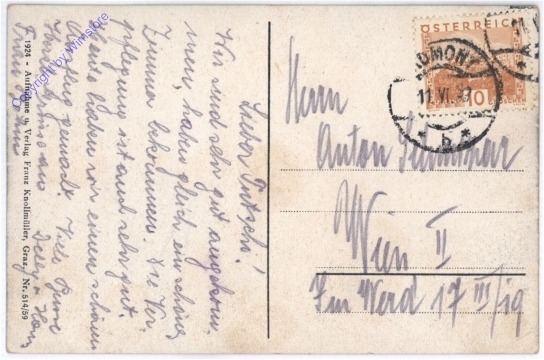 Lieber Putschi!
Wir sind sehr gut angekom-
men, haben gleich ein schönes
Zimmer bekommen. Die Ver-
pflegung ist auch sehr gut.
Heute haben wir einen schönen
Ausflug gemacht. Viele
aus
1924 - Aufnahme u. Verlag Franz Knollmüller, Graz. Nr. 514/59
copyright by Wimstore
ÖSTERREICH
10
ADMONT
11.VI.
* b *
Herrn
Anton
Wien II
Im Werd 17 III/19